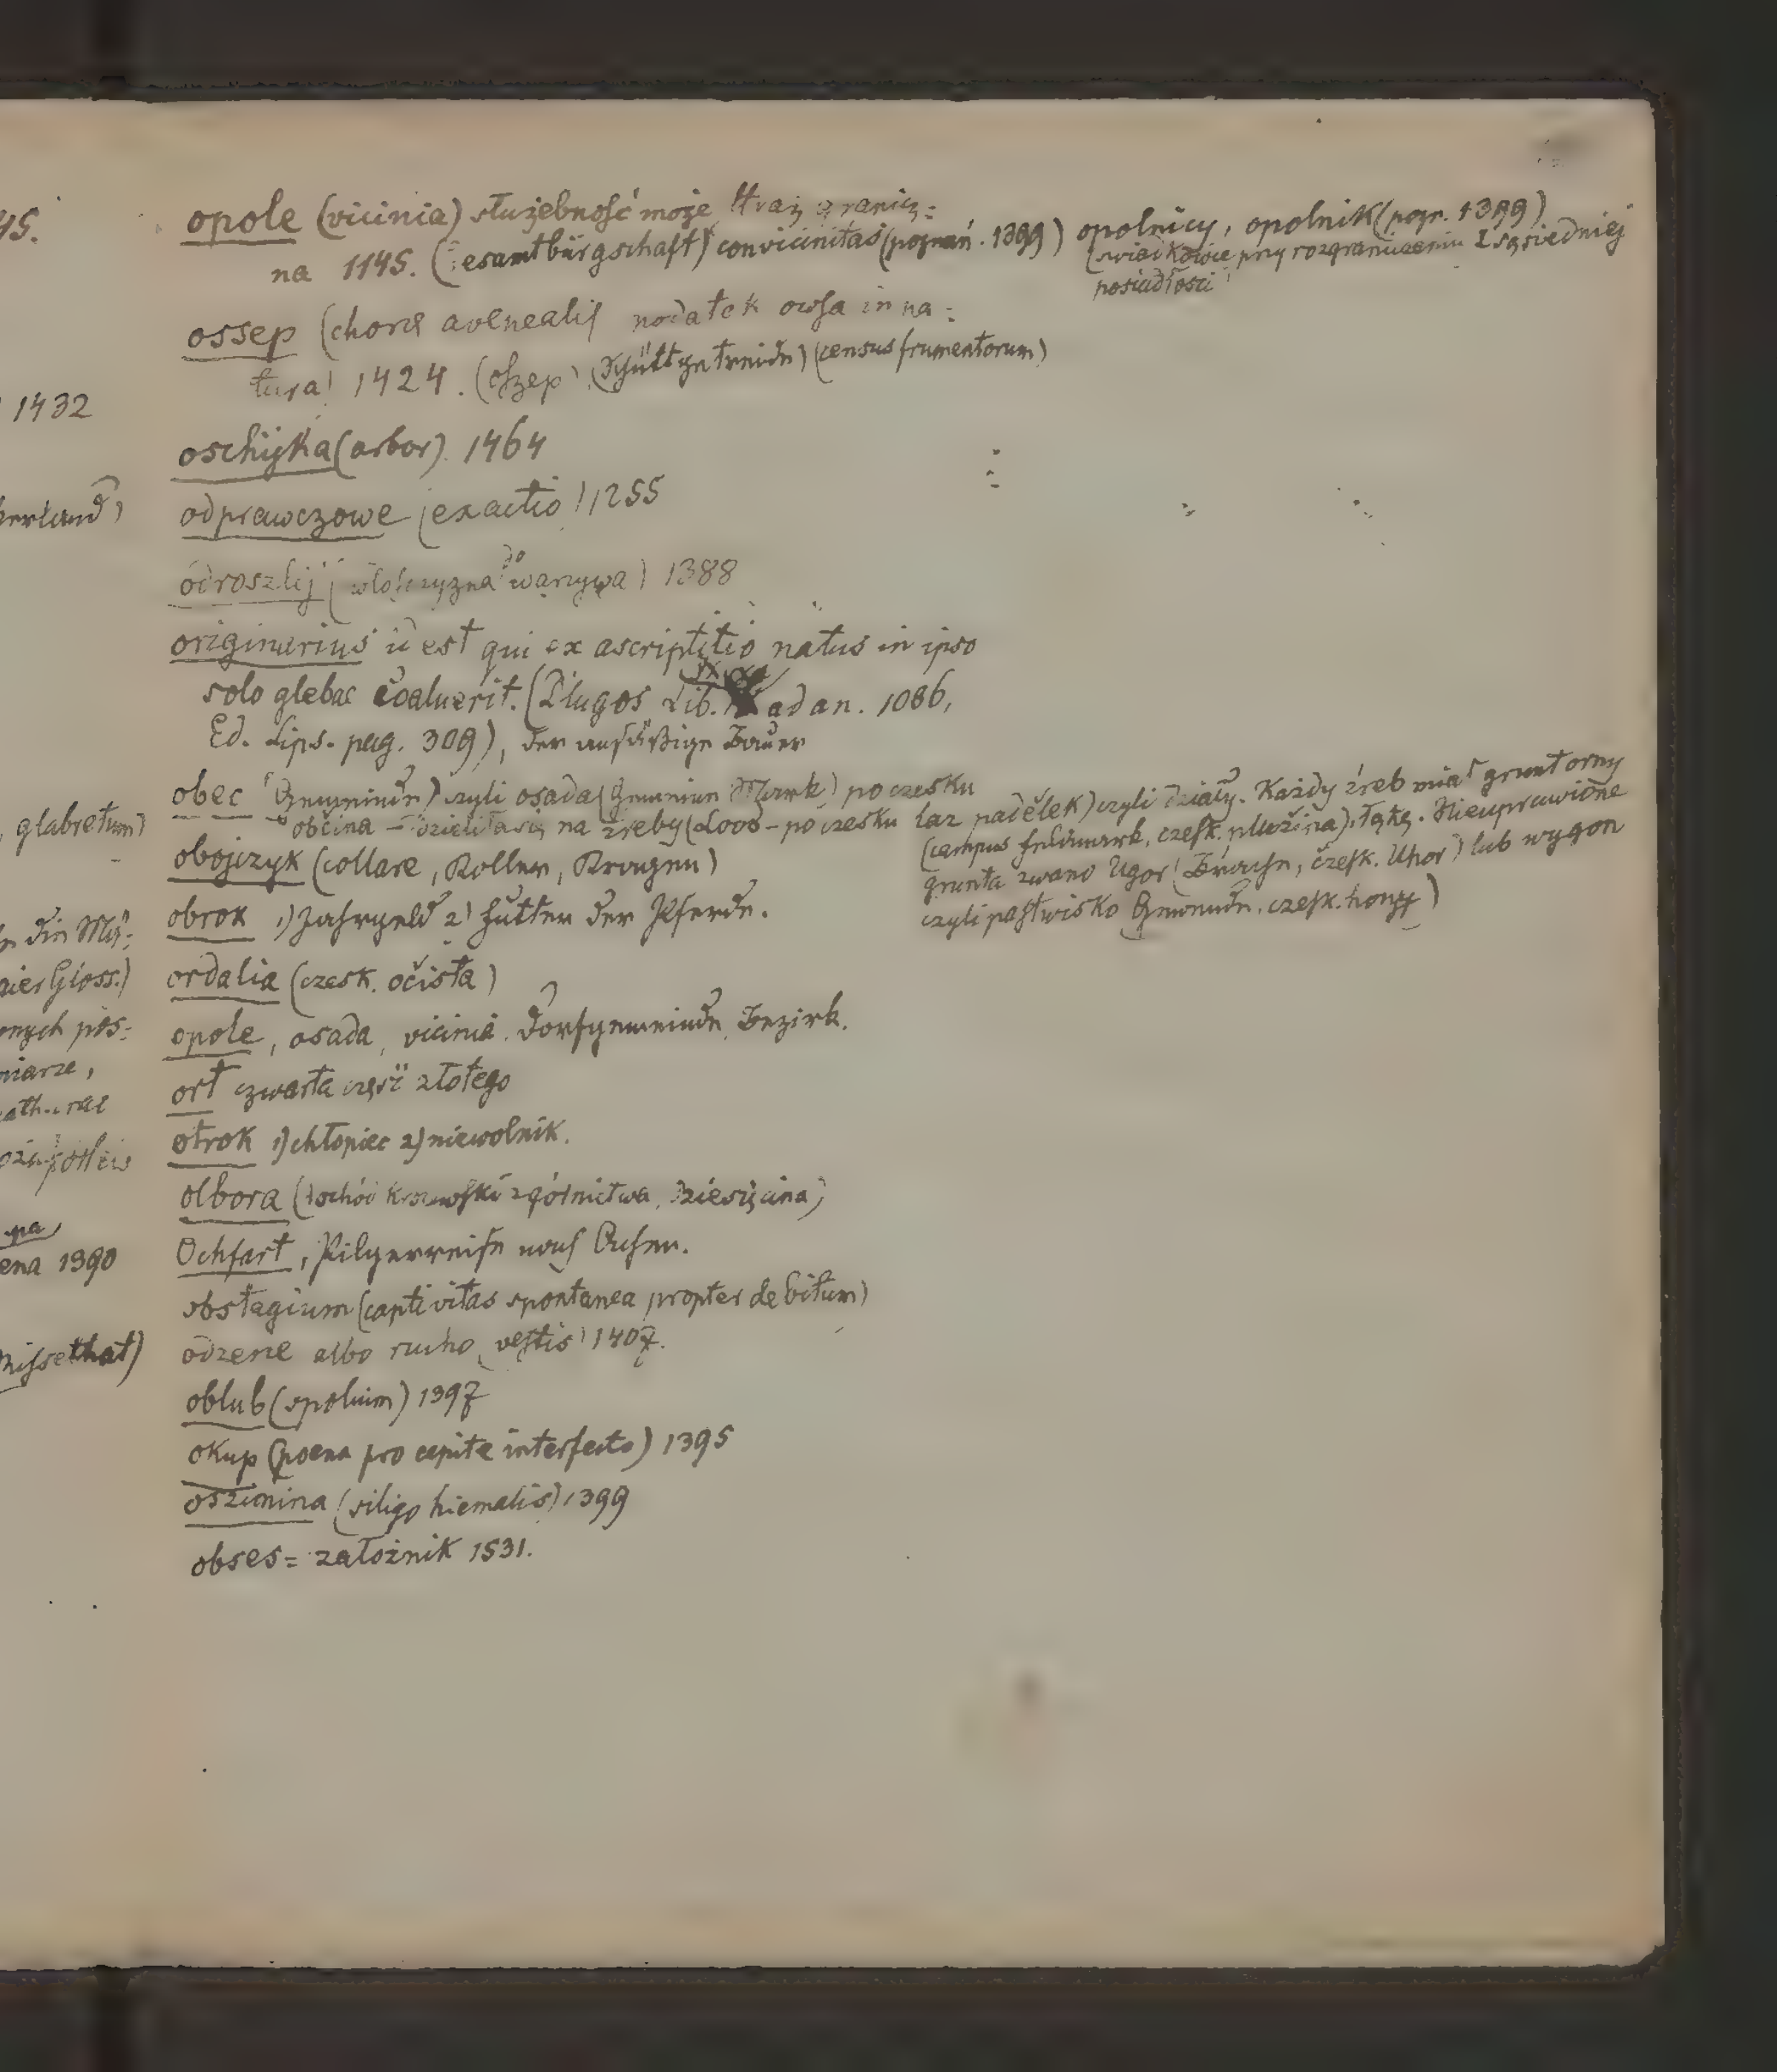 45.
1432
glabretum)
ena 1390
opole (vicinia) służebność może straż granicz=
na 1145. (Gesamtbürgschaft) convicinitas (poznań. 1399)
opolnicy, opolnik (pozn. 1399)
(świadkowie przy rozgraniczeniu z sąsiedniej
posiadłości
ossep (chorus avenealis podatek owsa in na=
tura) 1424. (oszep) (Schüttgetreide) (census frumentorum)
oschijka (arbor) 1464
odprawczowe (exactio) 1255
odroszlij (włoszczyzna do warzywa) 1388
originarius id est qui ex ascriptitio natus in ipso
solo glebae coaluerit. (Długos Lib. ad an. 1086,
Ed. Lips. pag. 309), der ansäßige Bauer
obec (Gemeinde) czyli osada (Gemeine Mark) po czesku
občina – dzieliła się na źreby (Loos – po czesku laz padělek) czyli działy. Każdy źreb miał grunt orny
(campus Feldmark, czesk. plužina), łąkę. Nieuprawione
grunta zwano Ugor (Brache, czesk. Uhor) lub wygon
czyli pastwisko Gemeinde. czesk.
obojczyk (collare, Koller, Kragen)
obrok 1) Jahrgeld 2) Futter der Pferde.
ordalia (czesk. očista)
opole, osada, vicinia. Dorfgemeinde, Bezirk.
ort czwarta część złotego
otrok 1) chłopiec 2) niewolnik.
olbora (dochód królewski z górnictwa, dziesięcina)
Ochfart, Pilgerreise nach Achen.
obstagium (captivitas spontanea propter debitum)
odzene albo rucho (vestis) 1407.
oblub (spolium) 1397
okup (poena pro capite interfecto) 1395
oszimina (siligo hiemalis) 1399
obses = założnik 1531.